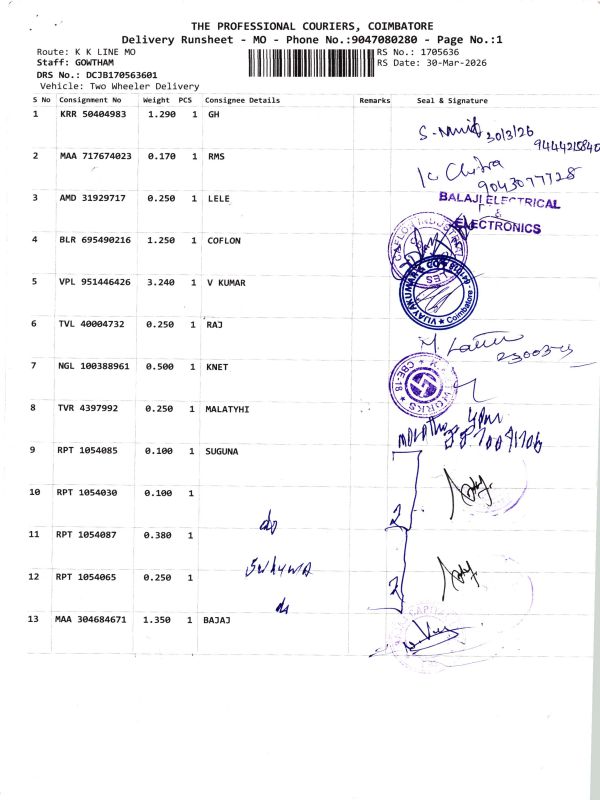 THE PROFESSIONAL COURIERS, COIMBATORE
Delivery Runsheet - MO - Phone No.:9047080280 - Page No.:1
Route: K K LINE MO RS No.: 1705636
Staff: GOWTHAM RS Date: 30-Mar-2026
DRS No.: DCJB170563601
Vehicle: Two Wheeler Delivery
S No Consignment No Weight PCS Consignee Details Remarks Seal & Signature
1 KRR 50404983 1.290 1 GH
30/3/26
2 MAA 717674023 0.170 1 RMS
9043077728
3 AMD 31929717 0.250 1 LELE
BALAJI ELECTRICAL
&
ELECTRONICS
4 BLR 695490216 1.250 1 COFLON
5 VPL 951446426 3.240 1 V KUMAR
6 TVL 40004732 0.250 1 RAJ
7 NGL 100388961 0.500 1 KNET
CBE-18
WORKS
8 TVR 4397992 0.250 1 MALATYHI
9 RPT 1054085 0.100 1 SUGUNA
10 RPT 1054030 0.100 1
2
do
11 RPT 1054087 0.380 1
12 RPT 1054065 0.250 1
2
13 MAA 304684671 1.350 1 BAJAJ